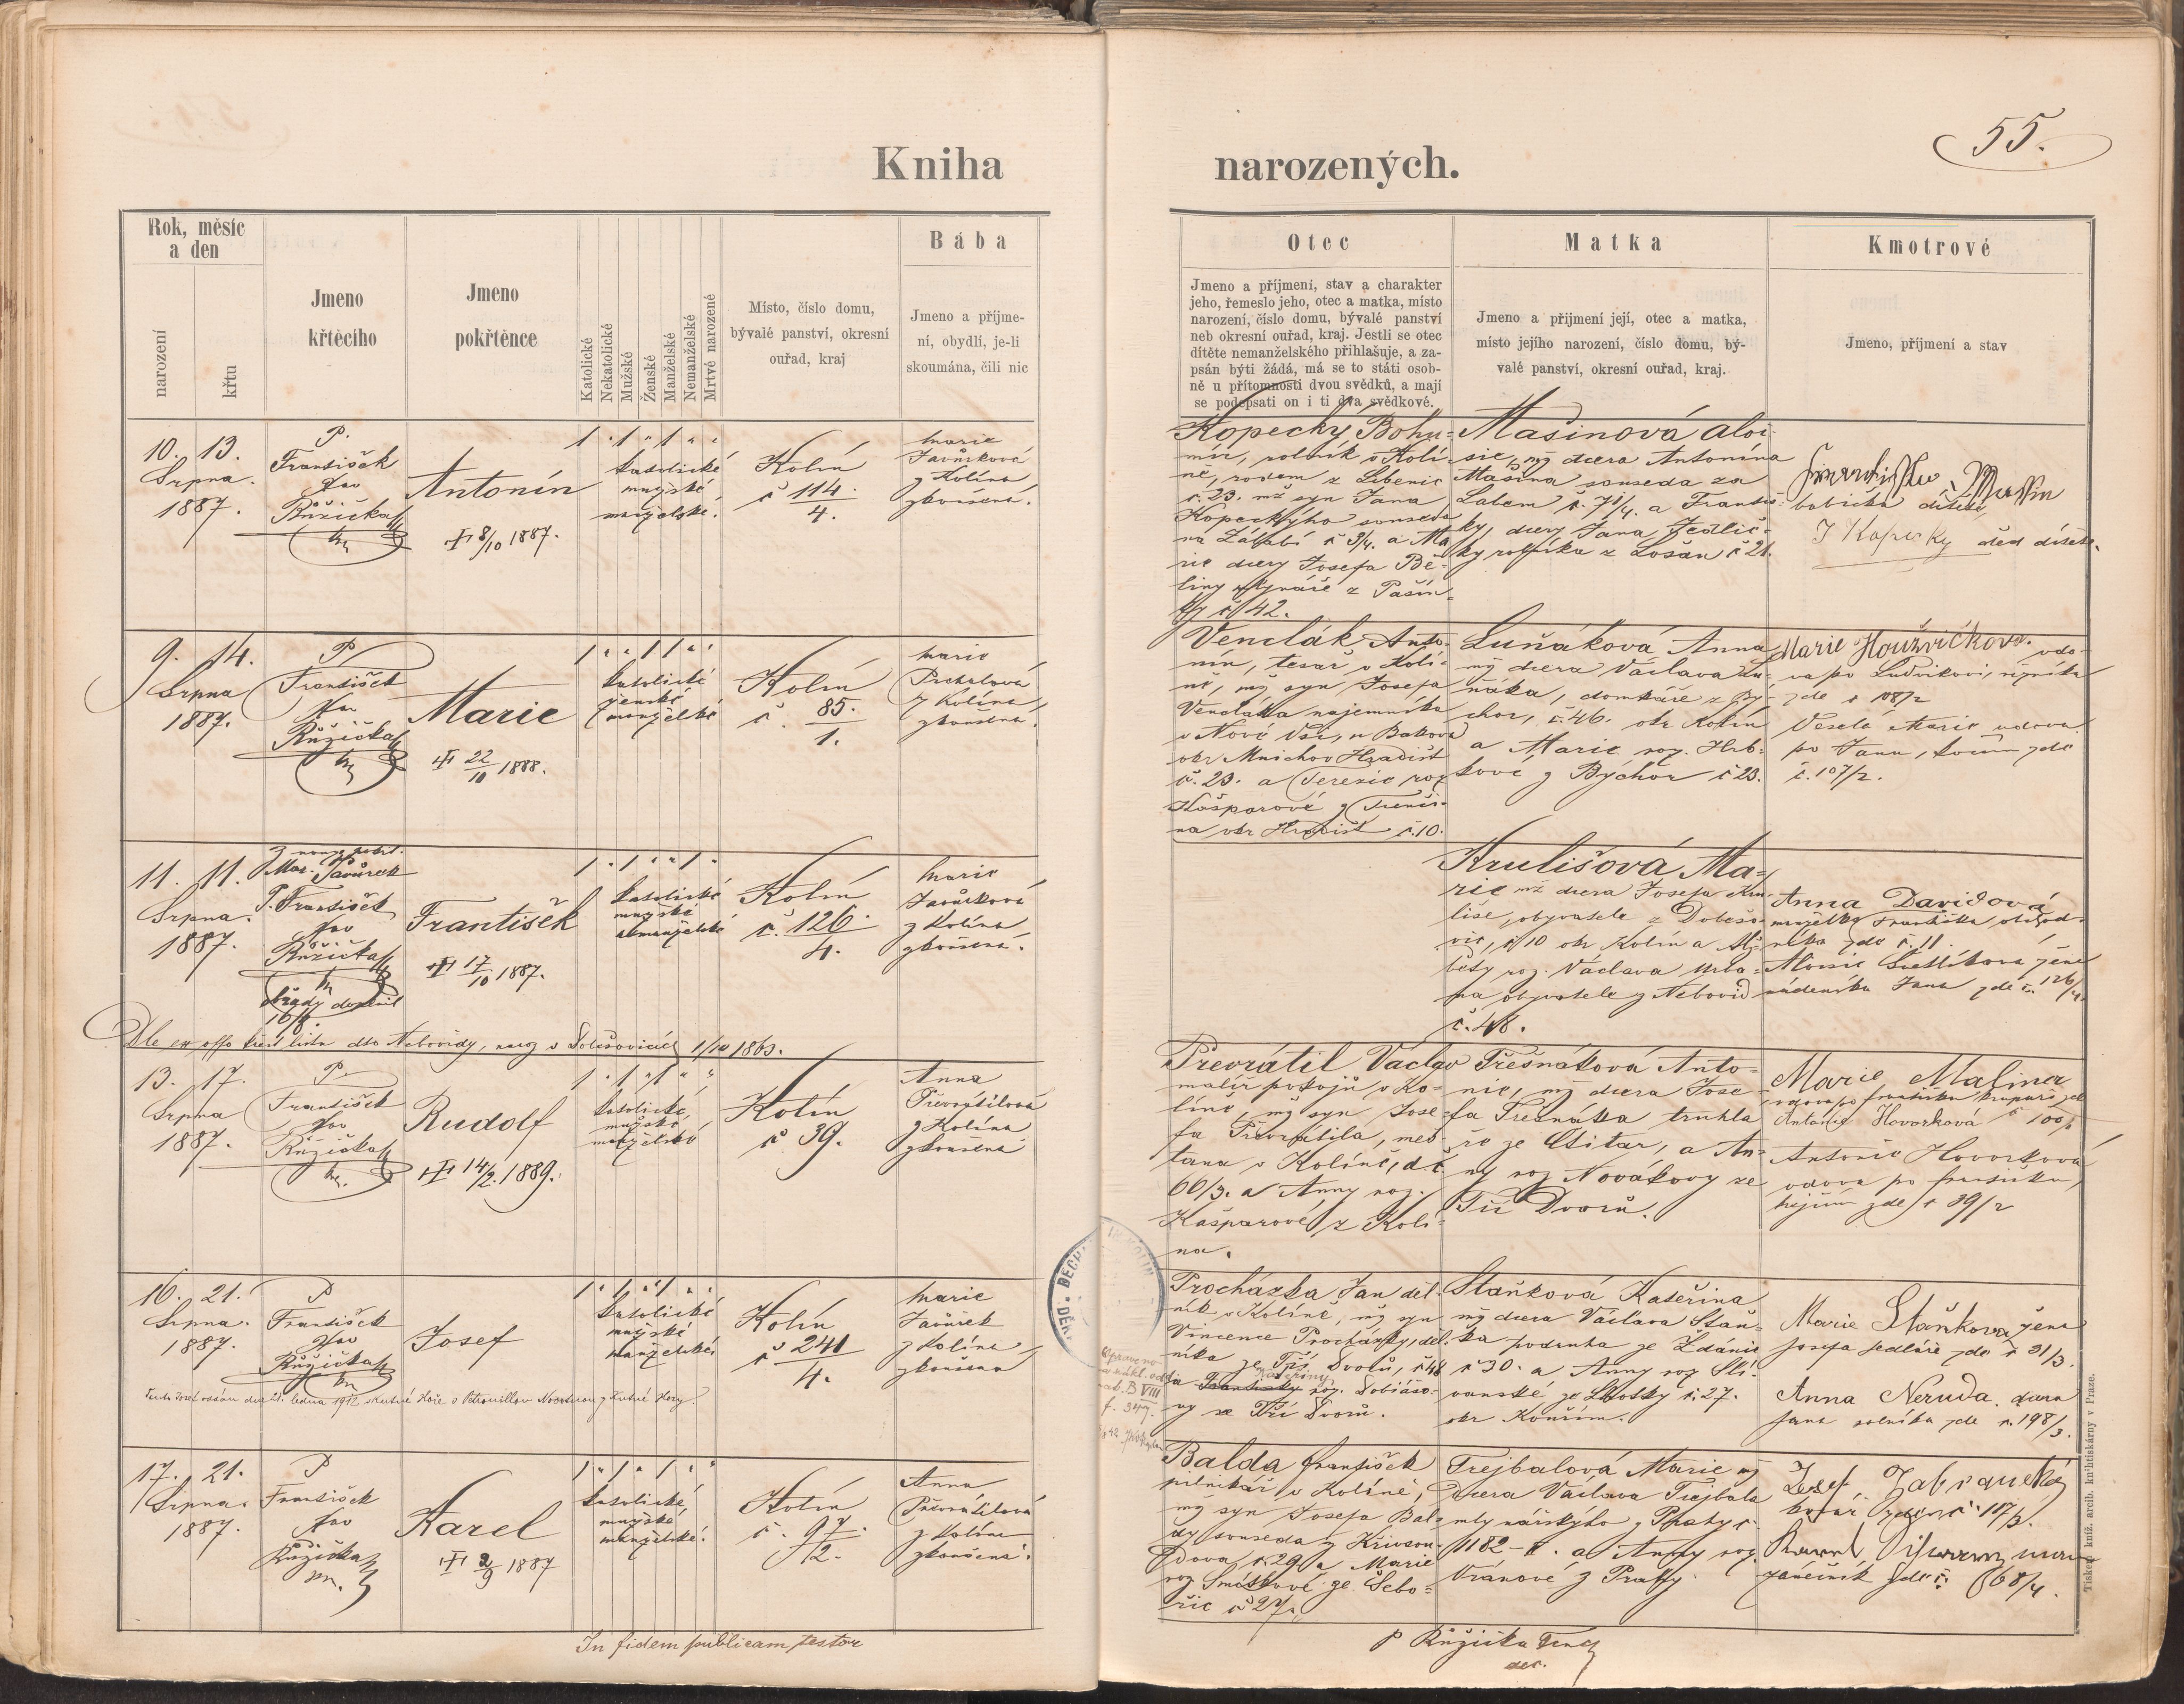 55.
Kniha narozených.
Rok, měsíc
a den
narození
křtu
Jmeno
křtěcího
Jmeno
pokřtěnce
Katolické
Nekatolické
Mužské
Ženské
Manželské
Nemanželské
Mrtvě narozené
Místo, číslo domu,
bývalé panství, okresní
ouřad, kraj
Bába
Jmeno a příjme-
ní, obydlí, je-li
skoumána, čili nic
Otec
Jmeno a příjmení, stav a charakter
jeho, řemeslo jeho, otec a matka, místo
narození, číslo domu, bývalé panství
neb okresní ouřad, kraj. Jestli se otec
dítěte nemanželského přihlašuje, a za-
psán býti žádá, má se to státi osob-
ně u přítomnosti dvou svědků, a mají
se podepsati on i ti dva svědkové.
Matka
Jmeno a přijmení její, otec a matka,
místo jejího narození, číslo domu, bý-
valé panství, okresní ouřad, kraj.
Kmotrové
Jmeno, příjmení a stav
10. 13.
Srpna.
1887.
P.
František
Růžička
Antonín
8/10 1887.
katolické
mužské
manželské.
Kolín
č 114
4.
Marie
Javůrková
z Kolína
zkoušená.
Kopecký Bohu-
mír, rolník v Kolí-
ně, rodem z Libenic
č. 23. mž syn Jana
Kopeckýho souseda
na Zálabí č 3/4. a Ma-
rie dcery Josefa Bě-
liny mlynáře z Pašin-
ky č 42.
Mašinová Aloi-
sie, mž dcera Antonína
Mašina souseda za
Labem č. 71/4. a Františ-
ky, dcery Jana Jedlič-
ky rolníka z Lošan č 21.
babička dítěte
J Kopecky děd dítěte.
9. 14.
Srpna
1887.
P
František
Růžička
Marie
22/10 1888.
katolické
ženské
manželské
Kolín
č. 85.
1.
Marie
Pechalová
z Kolína,
zkoušená.
Venclák Anto-
nín, tesař v Kolí-
ně, mž syn Josefa
Vencláka nájemníka
v Nové Vsi, u Bakova
okr Mnichov Hradiště
č. 23. a Terezie roz
Kašparové z
na okr Hradiště č. 10.
Luňáková Anna
mž dcera Václava Lu-
ňáka, domkáře z By-
chor, č. 46. okr Kolín
a Marie roz. Hrb-
kové z Býchor č 23.
Marie Houžvičková. vdo-
va po Ludvíkovi,
zde č 108/2
Veselá Marie vdova
po Janu, zde
č. 107/2.
11. 11.
Srpna.
1887.
Mar. Javůrek
P. František
Růžička
obřady doplnil
16/8.
František
17/10 1887.
katolické
mužské
nemanželské
Kolín
č. 126
4.
Marie
Javůrková
z Kolína
zkoušená.
Krulišová Ma-
rie mž dcera Josefa Kru-
liše, obyvatele z Dobešo-
vic, č 10 okr Kolín a Alž-
běty roz. Václava Urba-
na obyvatele z Nebovid
č. 48.
Anna Davidová
manželka Františka, obchod-
níka zde č. 11.
žena
nádeníka Jana zde č. 126/4.
Dle ex offo křest listu dto Nebovidy, naroz v Dobešovicích 1/10 1863.
13. 17.
Srpna
1887.
P.
František
Růžička
Rudolf
14/2. 1889.
katolické,
mužské
manželské
Kolín
č 39.
Anna
Převrátilová
z Kolína
zkoušená
Převrátil Václav
malíř pokojů v Ko-
líně, mž syn Jose-
fa Převrátila, měš-
ťana v Kolíně, d.č.
66/3. a Anny roz.
Kašparové z Kolí-
na.
Třešňáková Anto-
nie, mž dcera Jose-
fa Třešňáka truhla-
ře ze Ctitar, a An-
ny roz Novákovy ze
Tří Dvorů.
Marie Maliner
vdova po Františku, krupaři zde
Antonie Hovorková č 100/2
Antonie Hovorková
vdova po Františku,
zde č 39/2
16. 21.
Srpna.
1887.
P
František
Růžička
Josef
katolické
mužské
manželské
Kolín
č 241
4.
Marie
Javůrek
z Kolína,
zkoušená
Tento Josef oddán dne 21. ledna 1912 v Kutné Hoře s Petronillou Novotnou z Kutné Hory.
Procházka Jan děl-
ník v Kolíně, mž syn
Vincence Procházky, děl-
níka ze Tří Dvorů, č 48
a Františky Kateřiny roz. Tobiášo-
vy ze Tří Dvorů.
Staňková Kateřina
mž dcera Václava Staň-
ka podruha ze Ždánic
č 30. a Anny roz Sli-
vanské ze Lhotky č. 27.
okr Kouřim.
Marie Staňková žena
Josefa sedláře zde č 31/3.
Anna Neruda. dcera
Jana rolníka zde č. 198/3.
17. 21.
Srpna.
1887.
P
František
Růžička
Karel
2/9 1887
katolické,
mužské,
manželské.
Kolín
č. 97.
2.
Anna
Převrátilová
z Kolína
zkoušená.
Balda František
pilníkář v Kolíně,
mž syn Josefa Bal-
dy souseda z Křivsou-
dova, č. 29 a Marie
roz Smotkové ze Šebo-
řic č 27.
Trejbalová Marie mž
dcera Václava Trejbala
mlynářskýho z Prahy č.
1182-I. a Anny roz
Vránové z Prahy.
Josef Zabranský
kovář zde č. 107/3.
Karel
zámečník zde č. 68/4.
In fidem publicam testor
P Růžička Frant
Tiskem kníž. arcib. knihtiskárny v Praze.